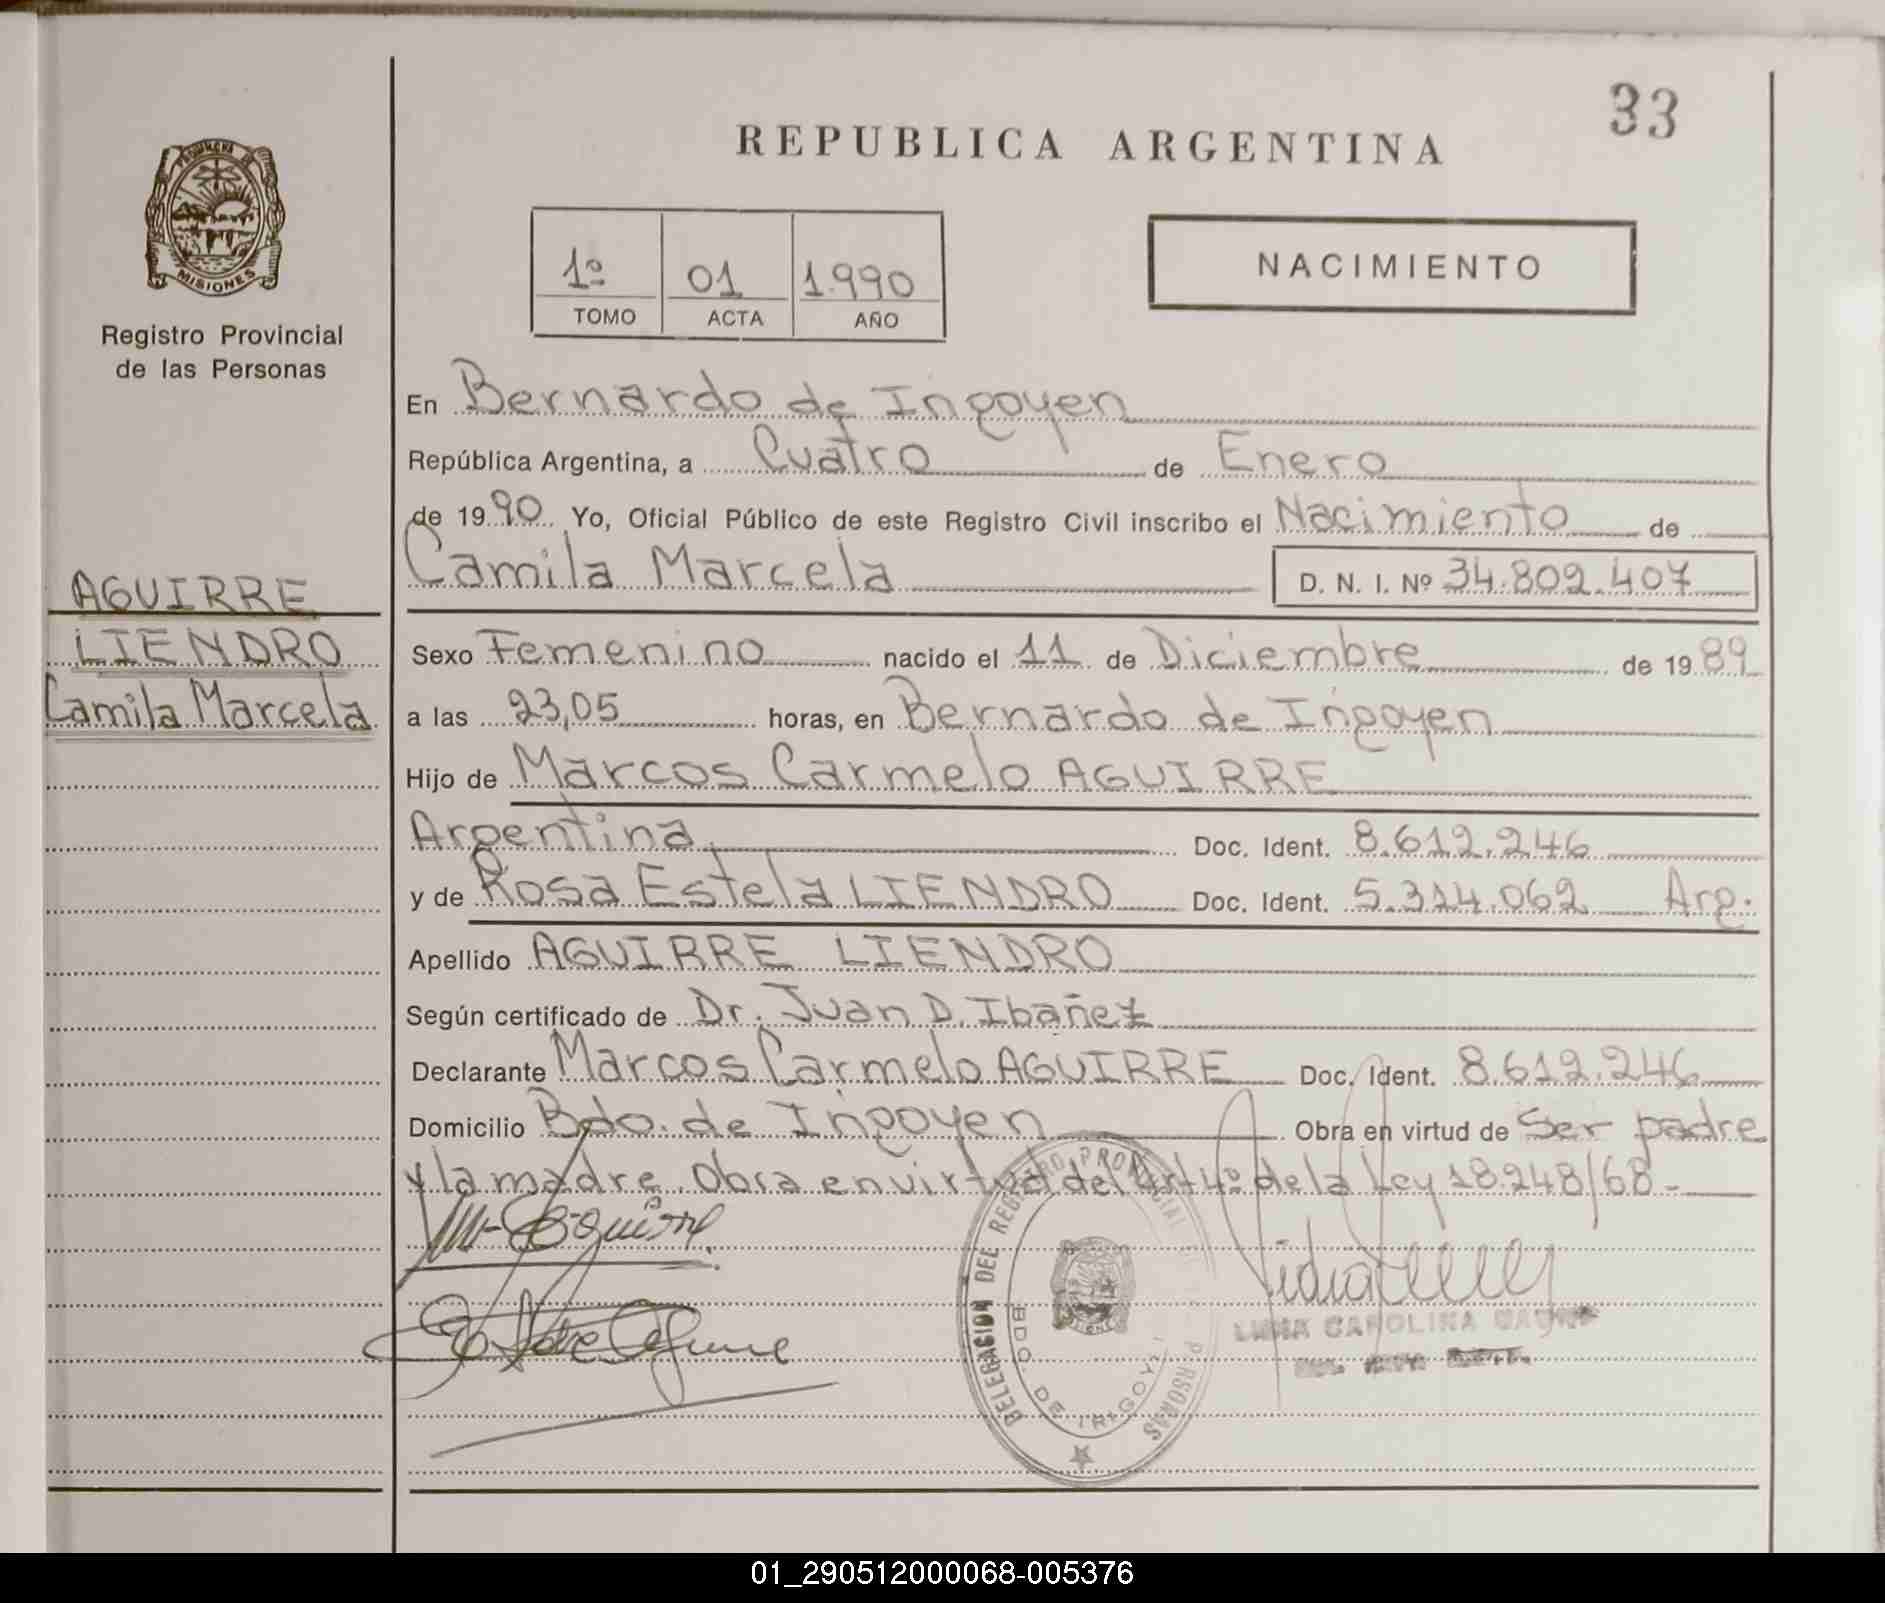 33
REPUBLICA ARGENTINA
PROVINCIA DE
MISIONES
Registro Provincial
de las Personas
1º 01 1.990
TOMO ACTA AÑO
NACIMIENTO
En Bernardo de Irigoyen
República Argentina, a Cuatro de Enero
de 1990 Yo, Oficial Público de este Registro Civil inscribo el Nacimiento de
Camila Marcela D. N. I. Nº 34.802.407
AGUIRRE
LIENDRO
Camila Marcela
Sexo Femenino nacido el 11 de Diciembre de 1989
a las 23,05 horas, en Bernardo de Irigoyen
Hijo de Marcos Carmelo AGUIRRE
Argentina Doc. Ident. 8.612.246
y de Rosa Estela LIENDRO Doc. Ident. 5.314.062 Arg.
Apellido AGUIRRE LIENDRO
Según certificado de Dr. Juan D. Ibañez
Declarante Marcos Carmelo AGUIRRE Doc. Ident. 8.612.246
Domicilio Bdo. de Irigoyen Obra en virtud de Ser padre
y la madre. Obra en virtud del Art 4º de la Ley 18.248/68-
DELEGACION DEL REGISTRO PROVINCIAL PERSONAS
BDO. DE IRIGOY
CAROLINA
01_290512000068-005376